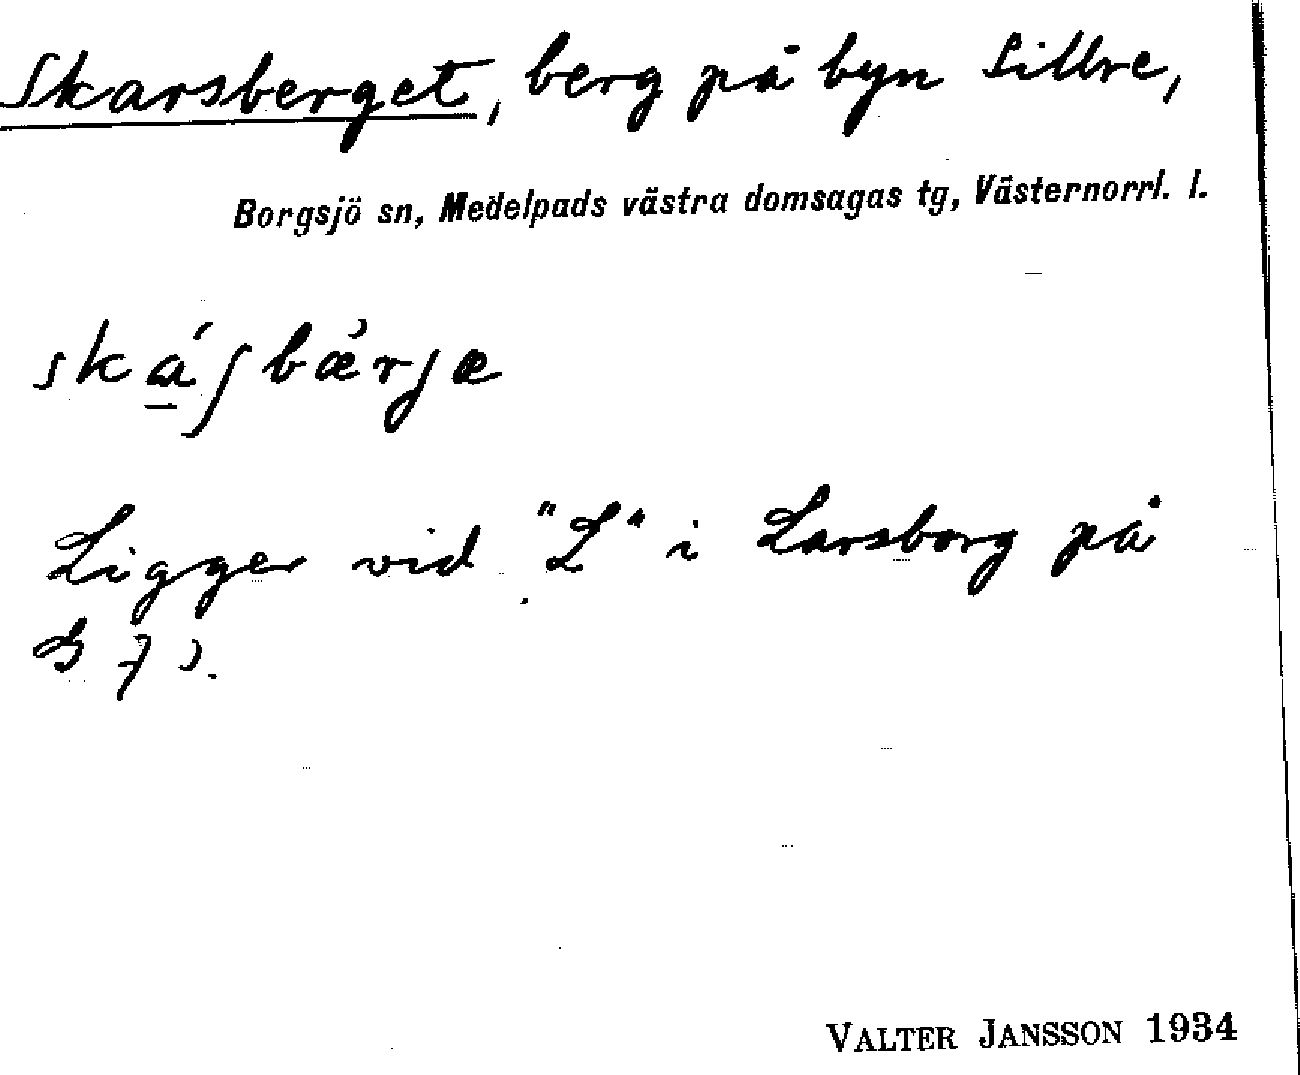 Skarsberget, berg på byn Sillre,
Borgsjö sn, Medelpads västra domsagas tg, Västernorrl. l.
ská̱ʃbæ̀rjæ
Ligger vid "L" i Larsborg på
VALTER JANSSON 1934